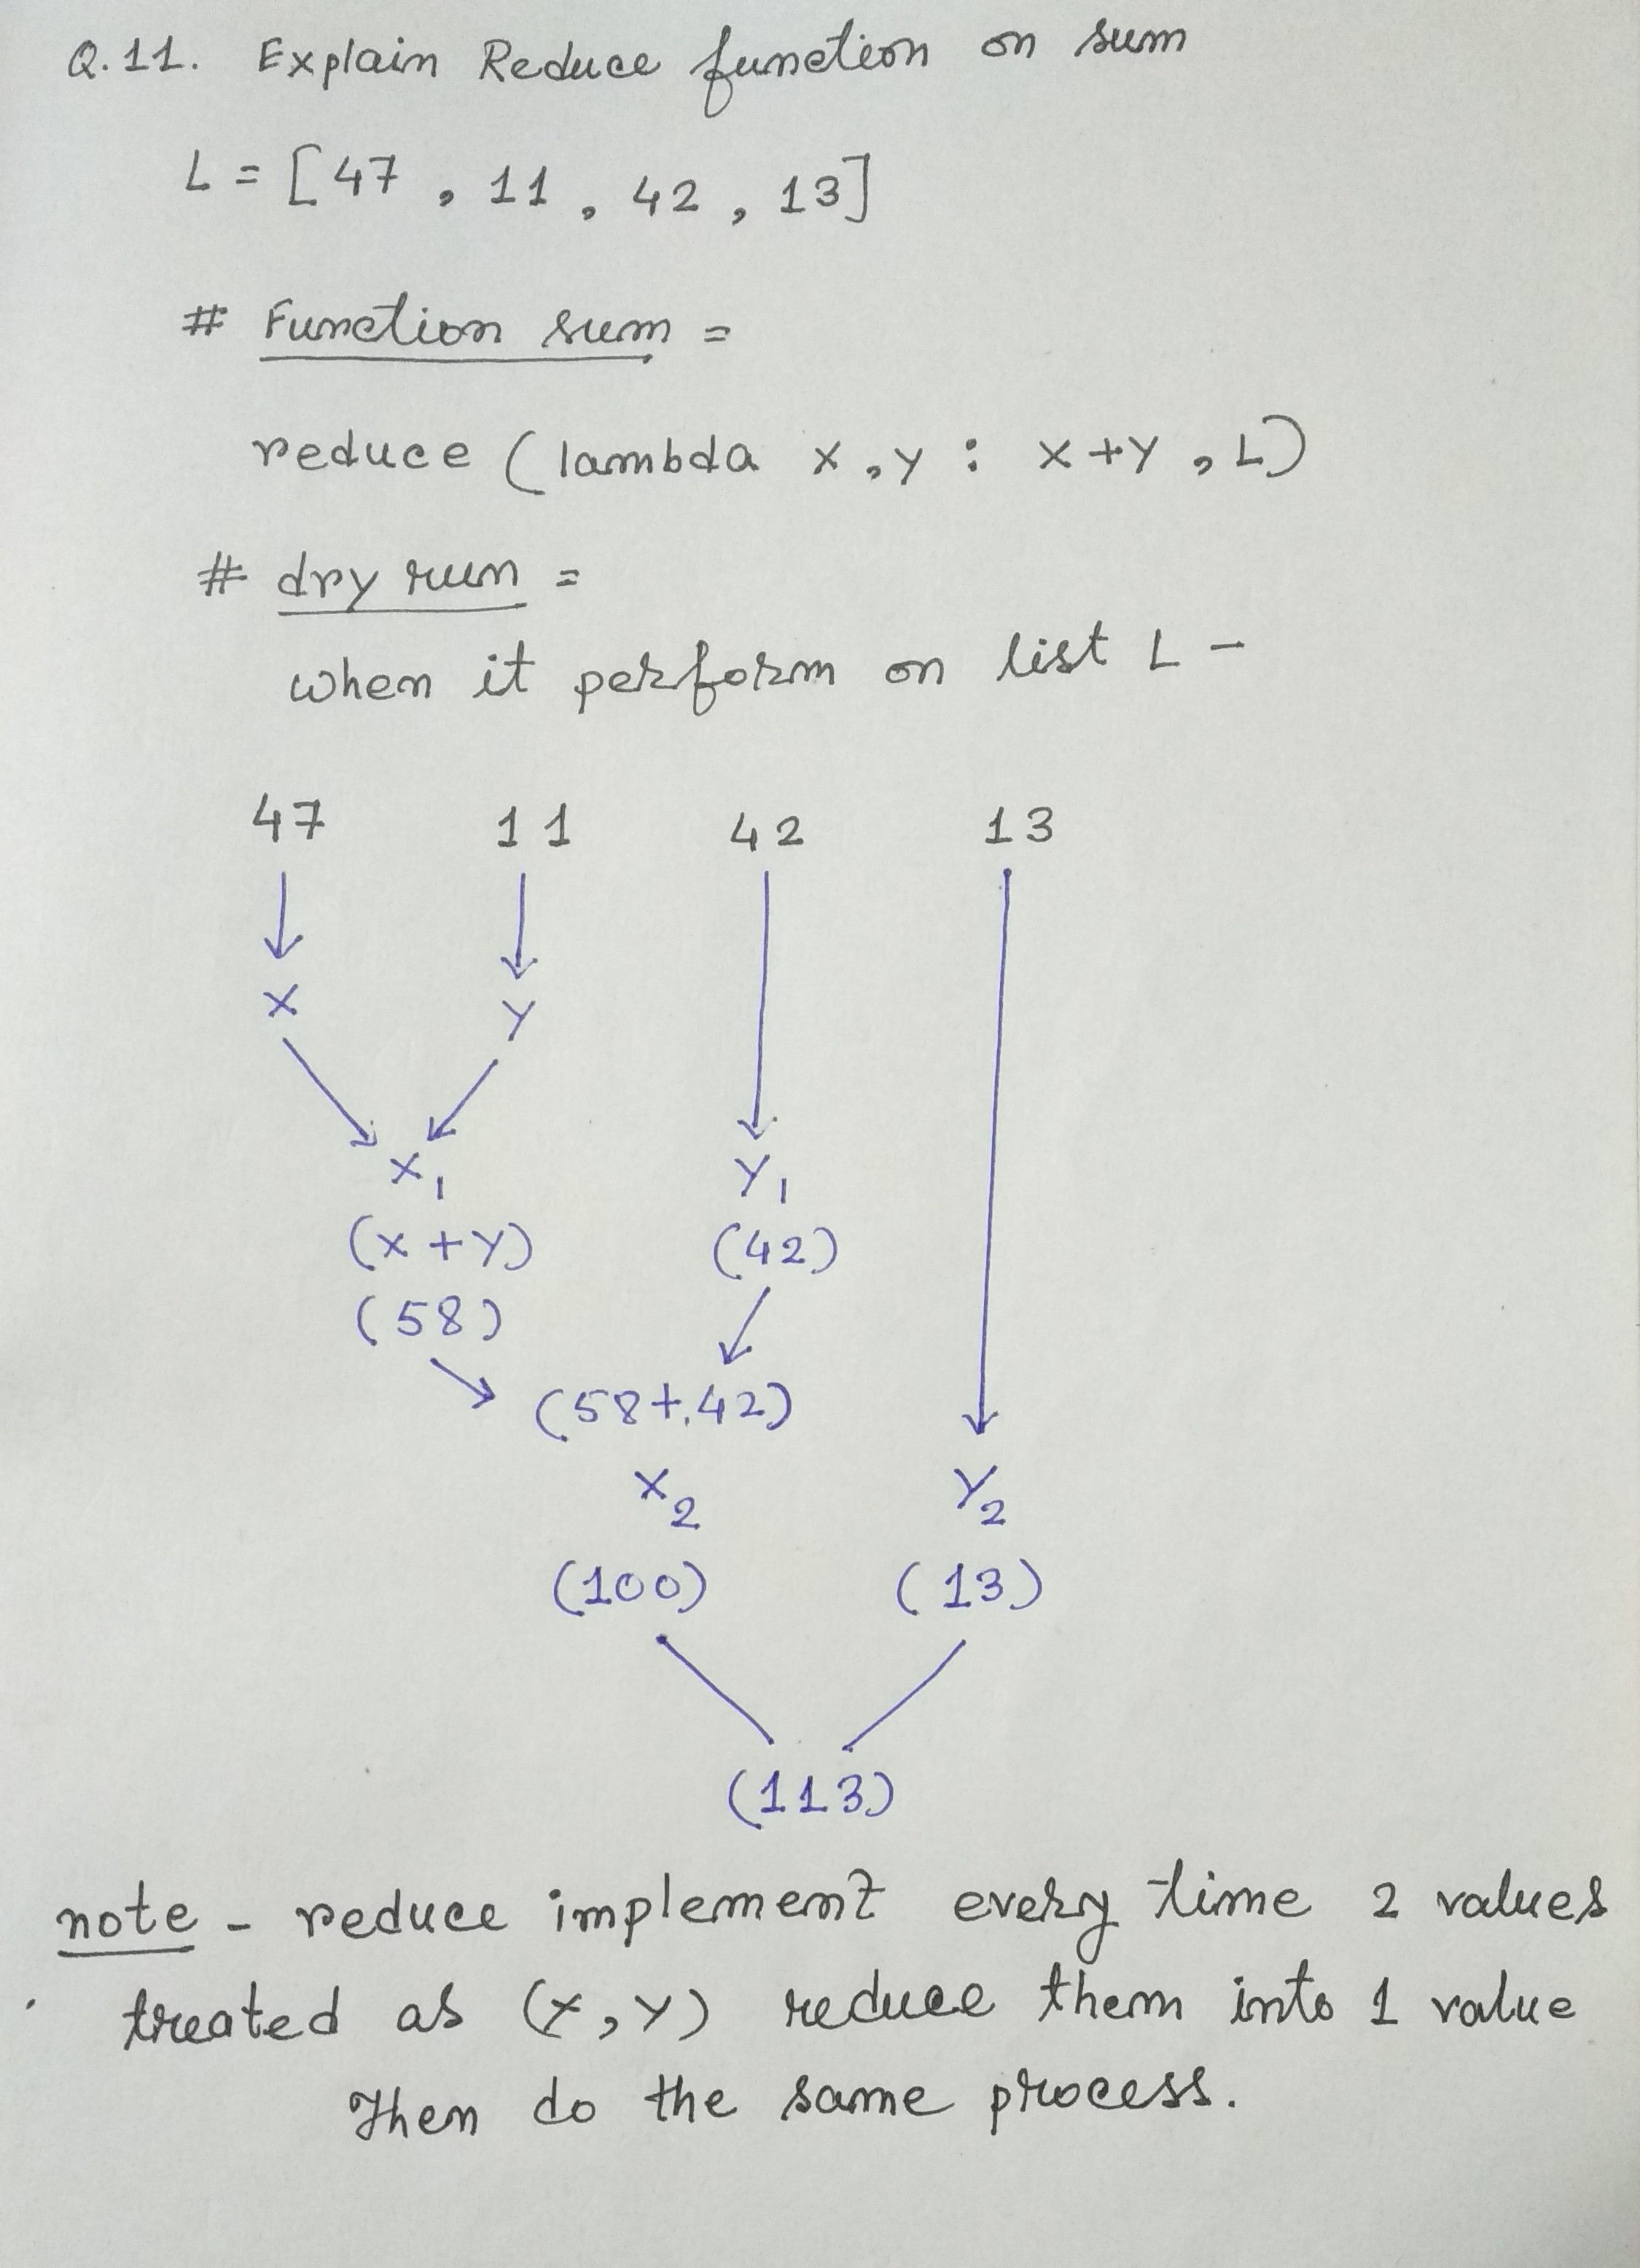 Q.11. Explain Reduce function on sum
L = [47, 11, 42, 13]
# Function sum =
reduce (lambda x,y : x+y, L)
# dry run =
when it perform on list L -
47 11 42 13
x y
x1 y1
(x+y) (42)
(58)
(58+42)
x2 y2
(100) (13)
(113)
note - reduce implement every time 2 values
treated as (x,y) reduce them into 1 value
Then do the same process.